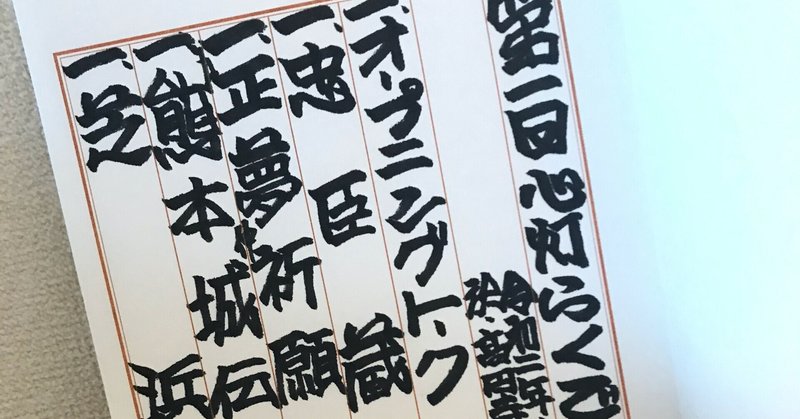 第一回心灯らくご
令和二年
一、オープニングトーク
一、忠臣蔵
一、正夢祈願
一、熊本城伝
一、芝浜